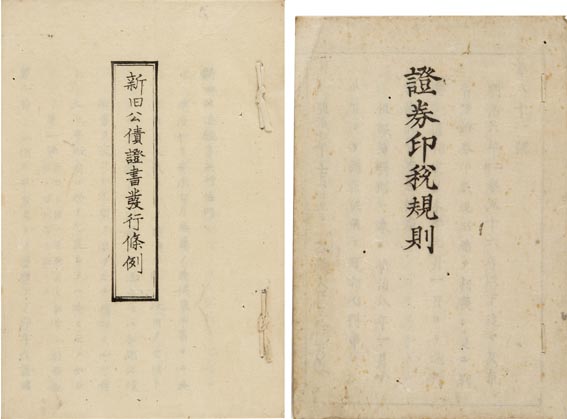 新旧公債證書發行條例
證券印税規則